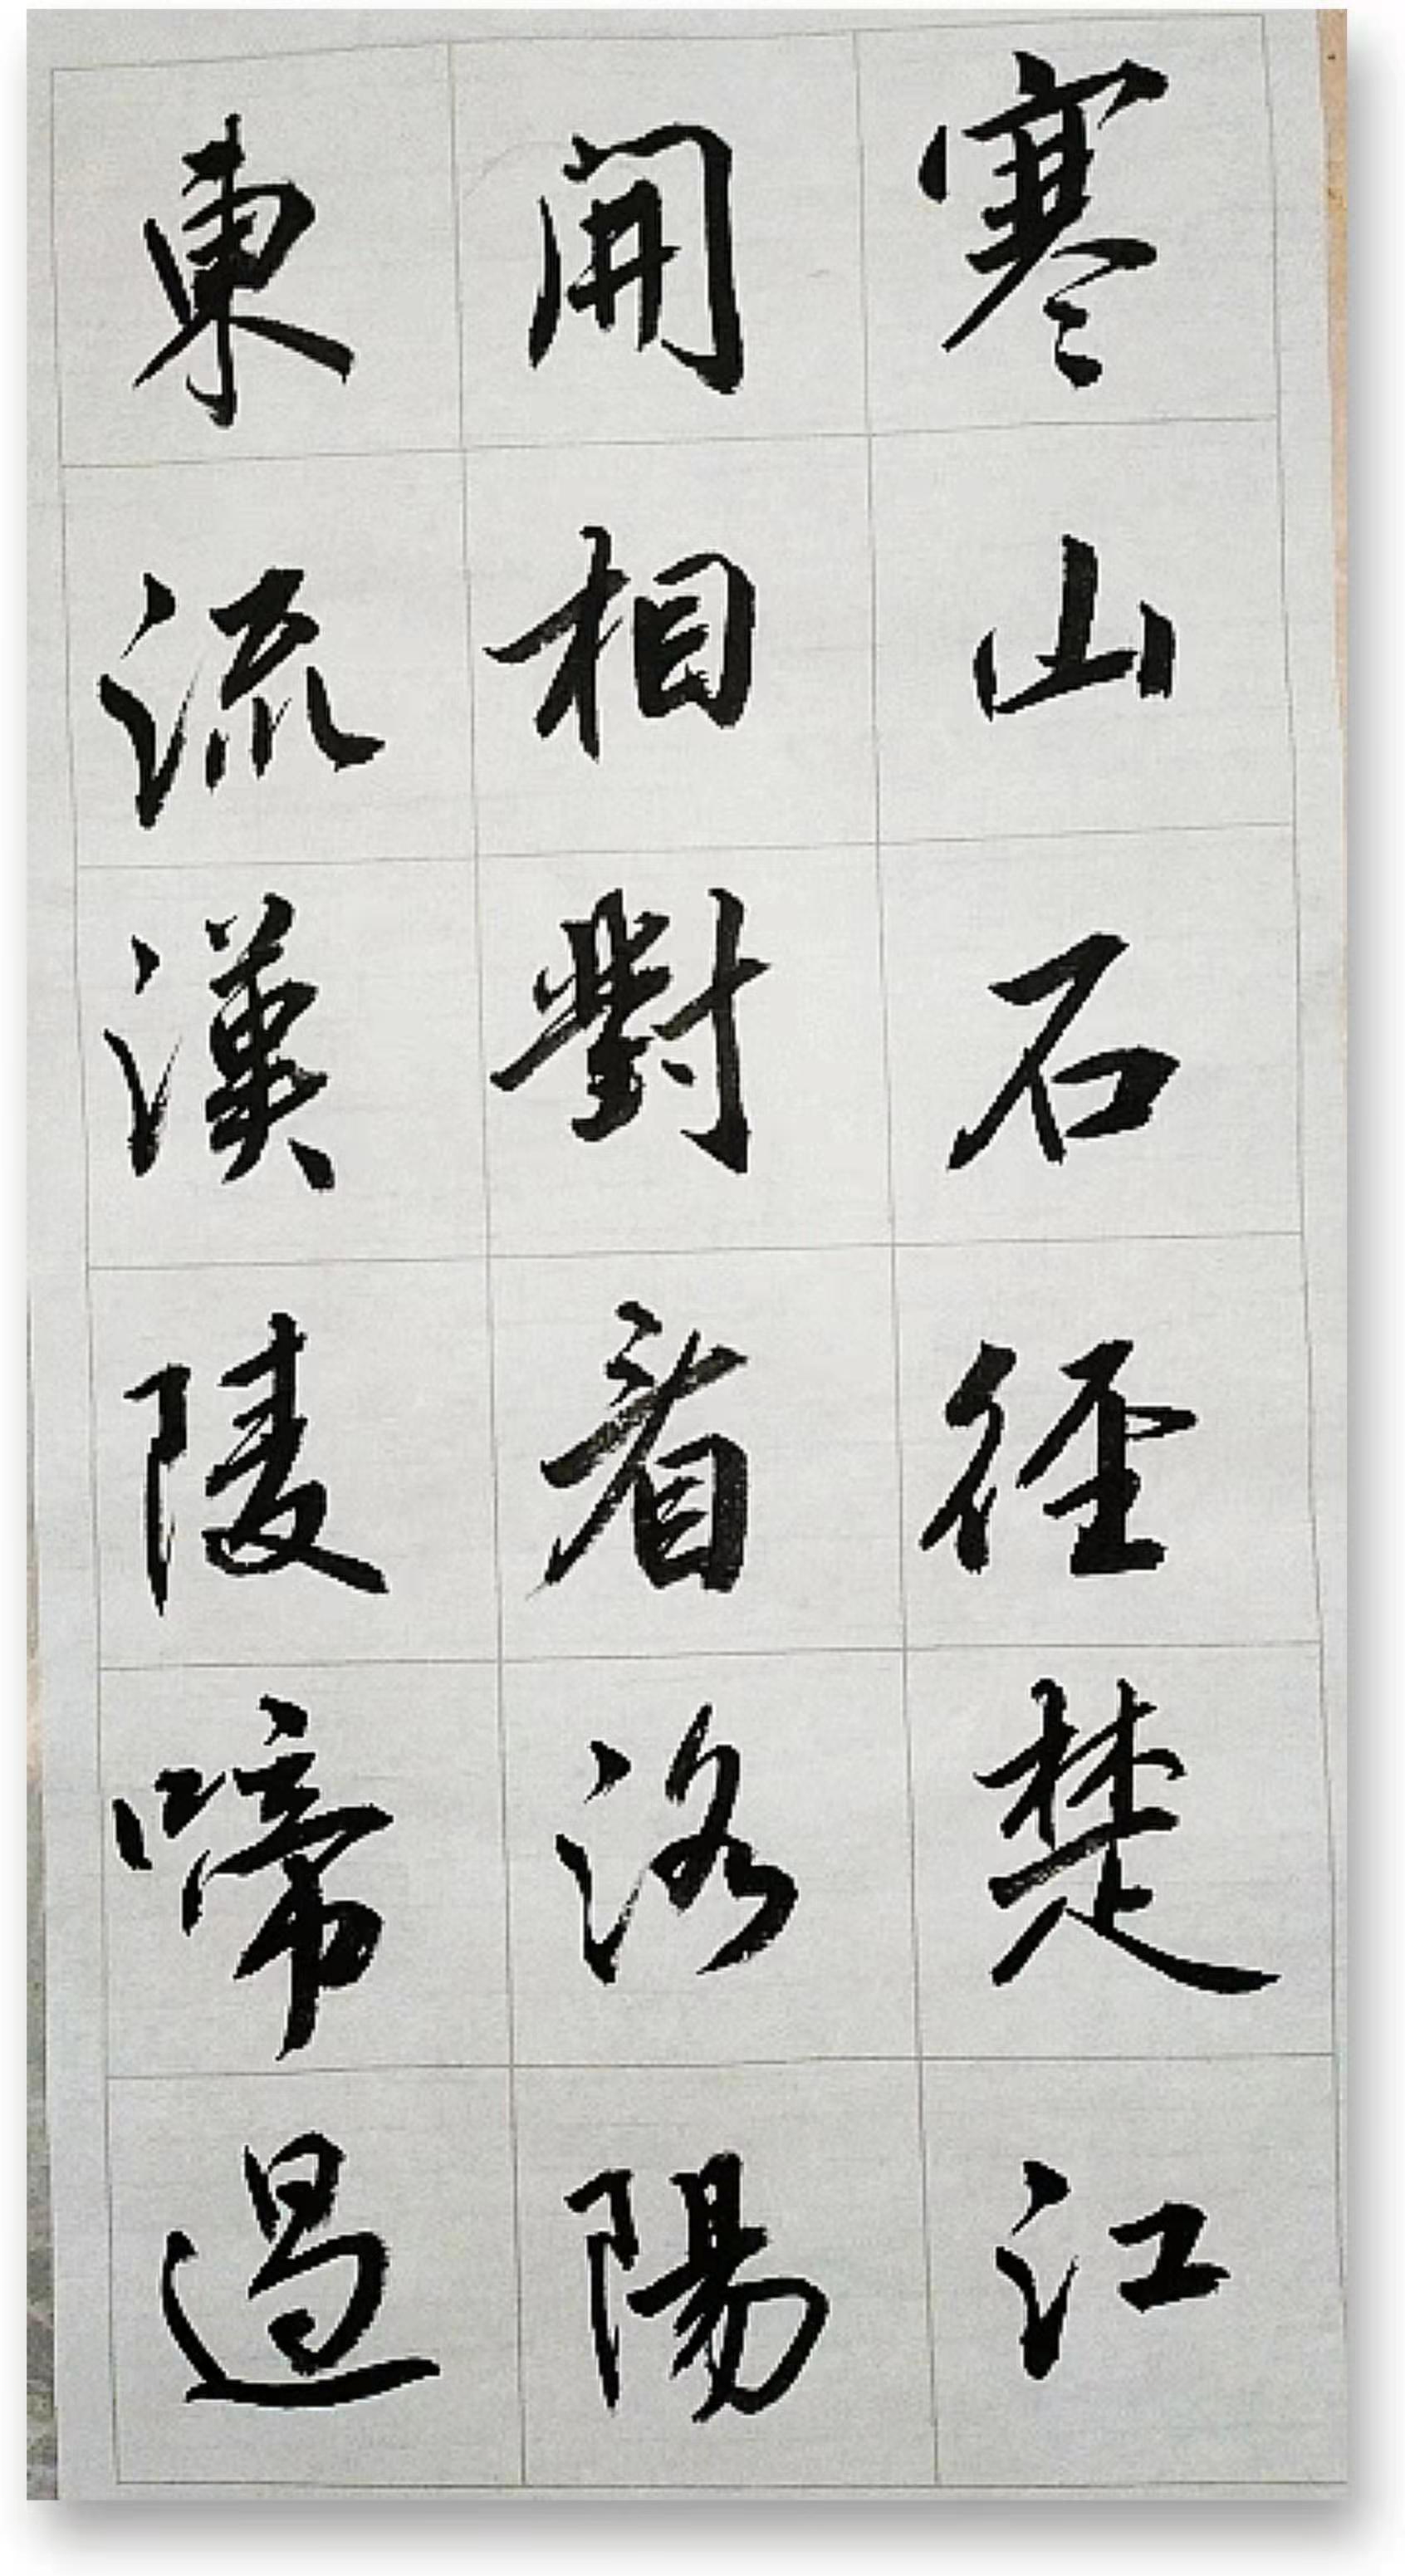 寒山石徑楚江
開相對看洛陽
東流漢陵啼過